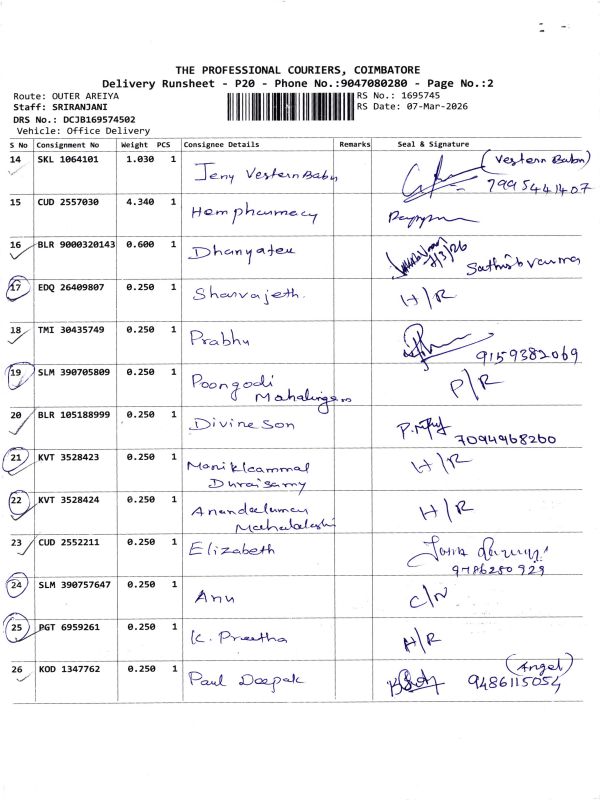 THE PROFESSIONAL COURIERS, COIMBATORE
Delivery Runsheet - P20 - Phone No.:9047080280 - Page No.:2
Route: OUTER AREIYA RS No.: 1695745
Staff: SRIRANJANI RS Date: 07-Mar-2026
DRS No.: DCJB169574502
Vehicle: Office Delivery
S No Consignment No Weight PCS Consignee Details Remarks Seal & Signature
14 SKL 1064101 1.030 1 Jeny Vestern Babu (Vestern Babu)
7995441407
15 CUD 2557030 4.340 1 Hem pharmacy
16 BLR 9000320143 0.600 1 Dhanyateu 7/3/26
17 EDQ 26409807 0.250 1 Sharvajeth. H/R
18 TMI 30435749 0.250 1 Prabhu
9159382069
19 SLM 390705809 0.250 1 Poongodi P/R
20 BLR 105188999 0.250 1 Divine Son
7094968260
21 KVT 3528423 0.250 1 Manikkammal H/R
Duraisamy
22 KVT 3528424 0.250 1 H/R
23 CUD 2552211 0.250 1 Elizabeth
9786250929
24 SLM 390757647 0.250 1 Anu C/N
25 PGT 6959261 0.250 1 K. Preetha H/R
26 KOD 1347762 0.250 1 Paul Deepak (Angel)
9486115054